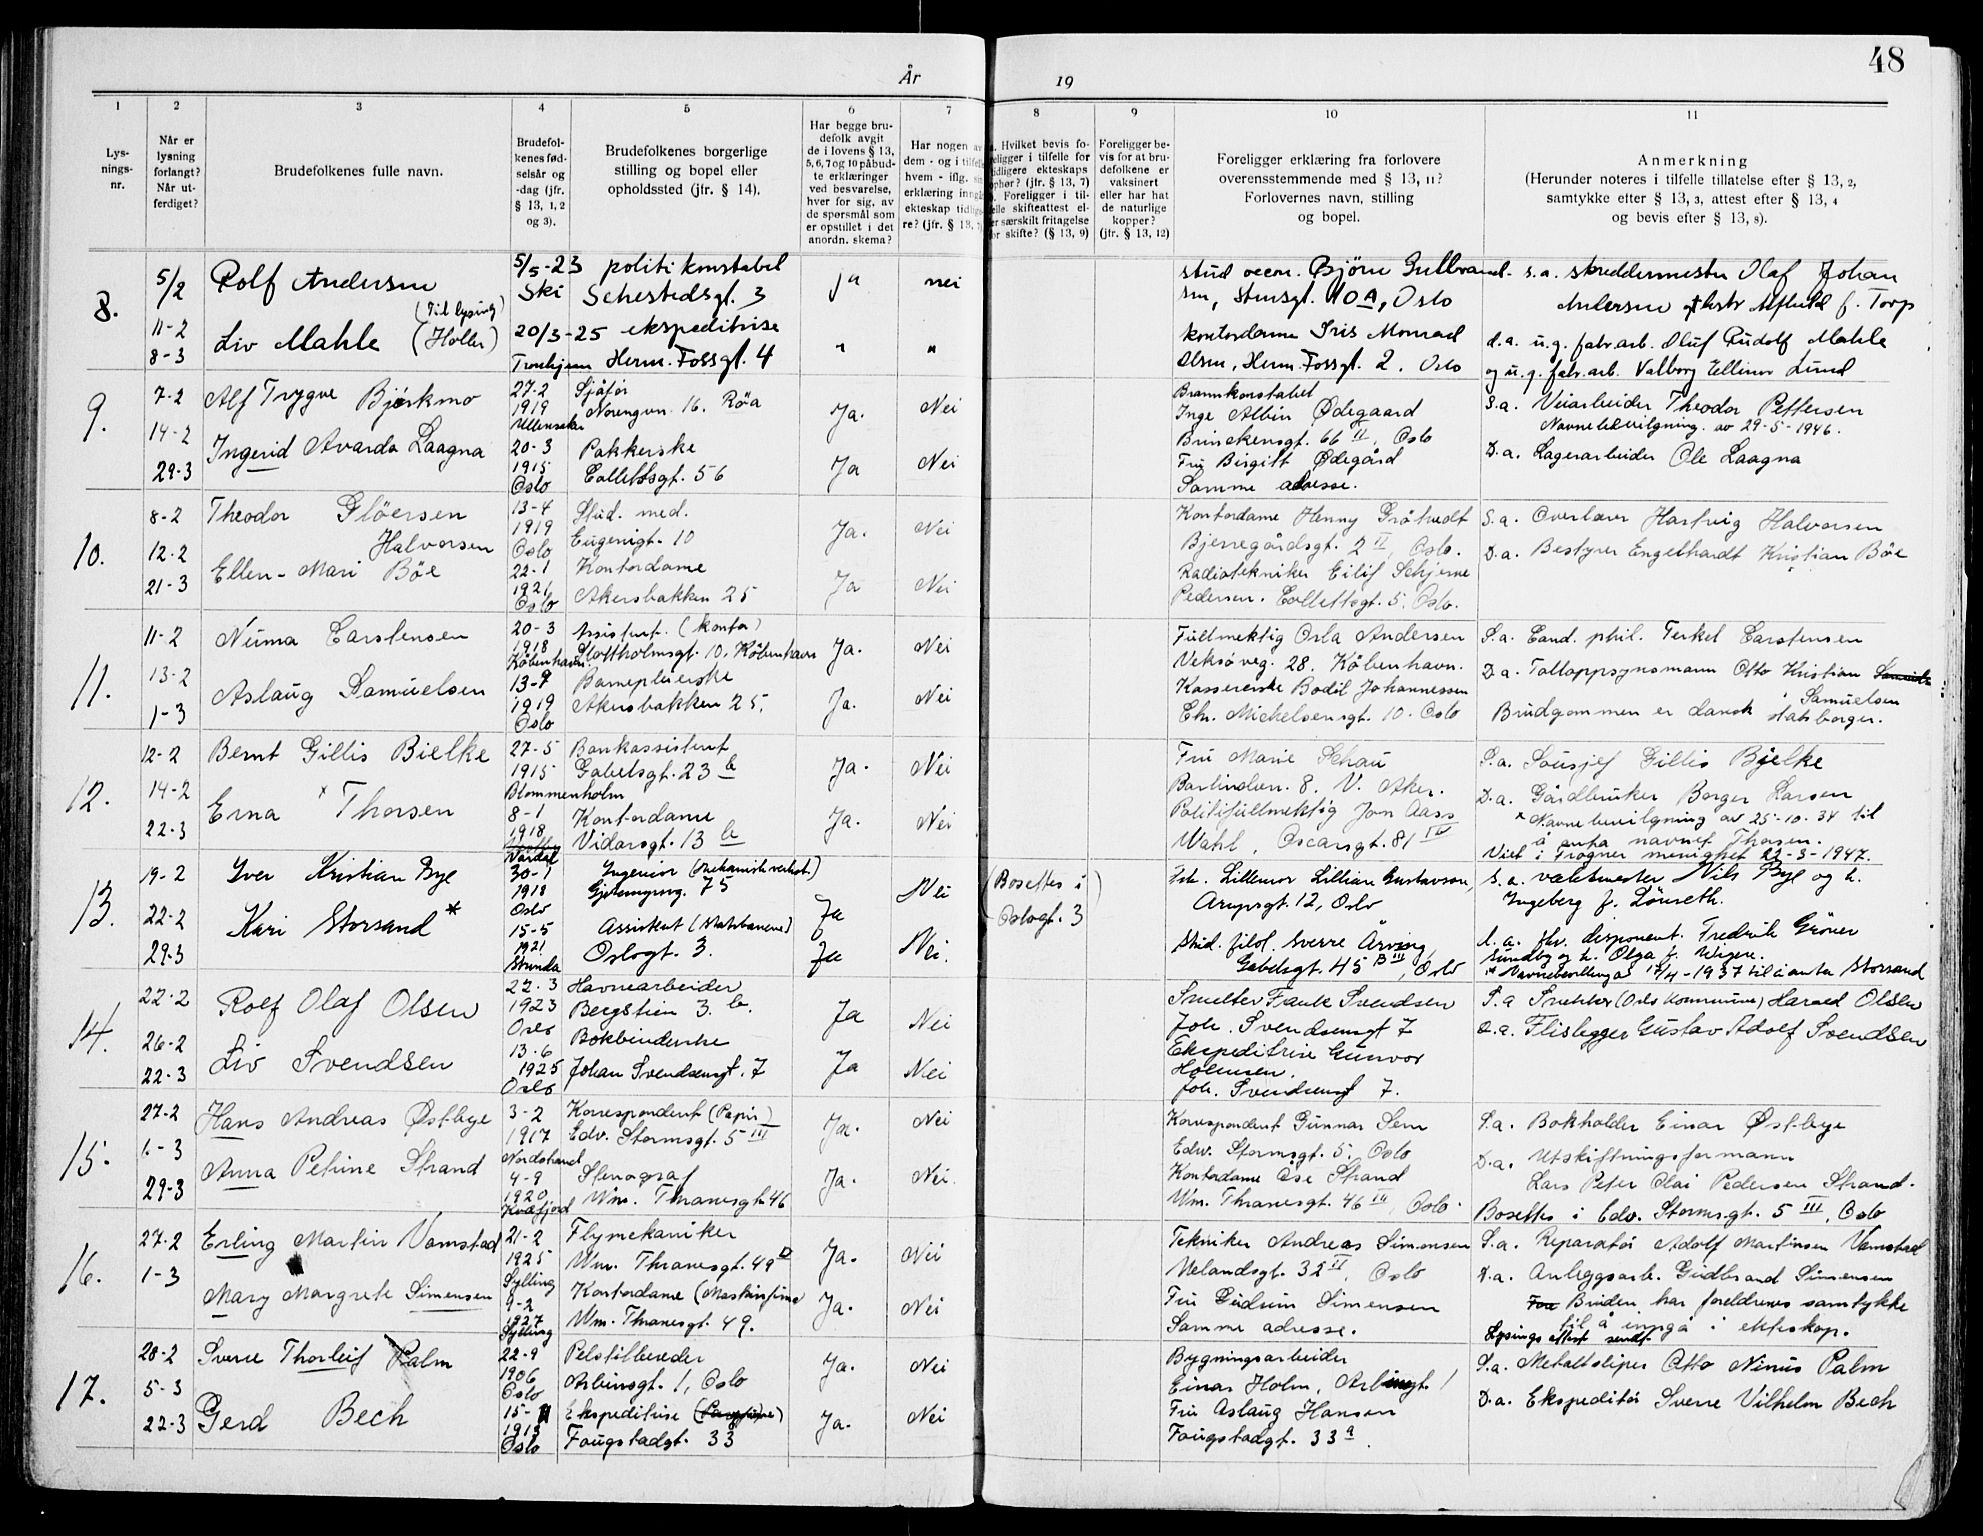 48
År
19
1
2
3
4
5
6
7
8
9
10
11
Lys-
nings-
nr.
Når er
lysning
forlangt?
Når ut-
ferdiget?
Brudefolkenes fulle navn.
Brudefol-
kenes fød-
selsår og
-dag (jfr.
§ 13, 1, 2
og 3).
Brudefolkenes borgerlige
stilling og bopel eller
opholdssted (jfr. § 14).
Har begge bru-
defolk avgit
de i lovens § 13,
5, 6, 7 og 10 påbud-
te erklæringer
ved besvarelse,
hver for sig, av
de spørsmål som
er opstillet i det
anordn. skema?
Har nogen av
dem - og i tilfelle
hvem - iflg. sin
erklæring inngått
ekteskap tidlige-
re? (jfr. § 13,
a. Hvilket bevis fo-
religger i tilfelle for
tidligere ekteskaps
ophør? (jfr. § 13, 7)
b. Foreligger i til-
felle skifteattest el-
ler særskilt fritagelse
for skifte? (§ 13, 9)
Foreligger be-
vis for at bru-
defolkene er
vaksinert
eller har hat
de naturlige
kopper?
(jfr. § 13, 12)
Foreligger erklæring fra forlovere
overensstemmende med § 13, 11?
Forlovernes navn, stilling
og bopel.
Anmerkning
(Herunder noteres i tilfelle tillatelse efter § 13, 2,
samtykke efter § 13, 3, attest efter § 13, 4
og bevis efter § 13, 8).
8.
5/2
11-2
8-3
Rolf Andersen
(Til lysing)
Liv Mahle (Holler)
5/5-23
Ski
20/3-25
Trondhjem
politikonstabel
Sehestedsgt. 3
ekspeditrise
Herm. Fossgt. 4
ja
"
nei
"
stud oecon. Bjørn Gulbrand-
sen, Stensgt. 10 A, Oslo
kontordame Iris Monrad
Olsen, Herm. Fossgt. 2, Oslo
s.a. skreddermester Olaf Johan
Andersen og hustr Alfhild f. Torp
d.a. u.g. fabr.arb. Oluf Rudolf Mahle
og u.g. fabr.arb. Valborg Ellinor Lund
9.
7-2
14-2
29-3
Alf Trygve Bjørkmo
Ingerid Avarda Laagna
27-2
1919
Ullensaker
20-3
1915
Oslo
Sjåfør
Norengvn. 16. Røa
Pakkerske
Collettsgt. 56
Ja.
Ja
Nei
Nei
Brannkonstabel
Inge Albin Ødegaard
Brinckensgt. 66 II, Oslo
Fru Birgitt Ødegård
Samme adresse.
S.a. Veiarbeider Theodor Pettersen
Navnebevilgning av 29-5-1946.
D.a. Lagerarbeider Ole Laagna
10.
8-2
12-2
21-3
Theodor Glöersen
Halvorsen
Ellen-Mari Böe
13-4
1919
Oslo
22-1
1921
Oslo
Stud. med.
Eugenigt. 10
Kontordame
Akersbakken 25
Ja.
Ja
Nei
Nei
Kontordame Henny Gråtvedt
Bjerregårdsgt. 2 II, Oslo.
Radiotekniker Eilif Schjerve
Pedersen. Collettsgt. 5, Oslo.
S.a. Overlærer Hartvig Halvorsen
D.a. Bestyrer Engelhardt Kristian Böe
11.
11-2
13-2
1-3
Numa Carstensen
Aslaug Samuelsen
20-3
1918
København
13-9
1919
Oslo
Assistent. (kontor)
Slottholmsgt. 10, København
Barnepleierske
Akersbakken 25,
Ja.
Ja.
Nei
Nei
Fullmektig Orla Andersen
Veksöveg. 28. København.
Kassererske Bodil Johannessen
Chr. Michelsensgt. 10. Oslo
S.a. Cand. phil. Terkel Carstensen
D.a. Tolloppsynsmann Otto Kristian
Samuelsen
Brudgommen er dansk statsborger.
12.
12-2
14-2
22-3
Bernt Gillis Bielke
Erna × Thorsen
27-5
1915
Blommenholm
8-1
1918
Vardal
Bankassistent
Gabelsgt. 23 b
Kontordame
Vidarsgt. 13 b
Ja.
Ja.
Nei
Nei
Fru Marie Schau
Barlindvn. 8. V. Aker.
Politifullmektig Jon Aass
Wahl, Oscarsgt. 81 IV
S.a. Sousjef Gillis Bjelke
D.a. Gårdbruker Borger Larsen
× Navnebevilgning av 25-10-34 til
å anta navnet Thorsen.
Viet i Frogner menighet 22-3-1947.
13.
19-2
22-2
29-3
Iver Kristian Bye
Kari Storsand *
30-1
1918
Oslo
15-5
1921
Strinda
Ingeniør (Mekanisk verkst.)
75
Assistent (Statsbanene)
Oslogt. 3.
Ja
Ja
Nei
Nei.
(Bosettes i
Oslogt. 3)
Frk. Lillemor Lillian Gustavson,
Arupsgt. 12, Oslo
Stud. filol. Sverre Årving,
Gabelsgt. 45 B III, Oslo
S.a. Nils Bye og h.
Ingeberg f. Lönseth.
d.a. fhv. disponent. Fredrik Gröner
Sundby og h. Olga f. Wigen.
* Navnebevilling as 17/4-1937 til å anta Storsand
14.
22-2
26-2
22-3
Rolf Olaf Olsen
Liv Svendsen
22-3
1923
Oslo
13-6
1925
Oslo
Havnearbeider
Bergstien 3. b.
Bokbinderske
Johan Svendsensgt. 7
Ja
Ja
Nei
Nei
Smelter Frank Svendsen
Joh. Svendsensgt 7
Ekspeditrise Gunvor
Holmsen.
Joh. Svendsensgt 7.
S.a Snekker (Oslo Kommune) Harald Olsen
D.a. Flislegger Gustav Adolf Svendsen
15.
27-2
1-3
29-3
Hans Andreas Østbye
Anna Petrine Strand
3-2
1917
Nordstrand
4-9
1920
Kvæfjord
Korrespondent (Papir)
Edv. Stormsgt. 5 III
Stenograf
Wm. Thranesgt. 46
Ja.
Ja.
Nei
Nei.
Korrespondent Gunnar Sem
Edv. Stormsgt. 5. Oslo
Kontordame Åse Strand
Wm. Thranesgt. 46 III, Oslo.
S.a. Bokholder Einar Østbye
D.a. Utskiftningsformann
Lars Peter Olai Pedersen Strand.
Bosettes i Edv. Stormsgt. 5 III, Oslo
16.
27-2
1-3
Erling Martin Vamstad
Mary Margrete Simensen
21-2
1925
Sylling
9-2
1927
Sylling
Flymekaniker
Wm. Thranesgt. 49 D
Kontordame (Maskinfirma
Wm. Thranesgt. 49.
Ja.
Ja.
Nei
Nei
Tekniker Andreas Simensen
Uelandsgt. 32 II, Oslo
Fru Gudrun Simensen
Samme adresse.
S.a. Reparatør Adolf Martinsen Vamstad
D.a. Anleggsarb. Gudbrand Simensen
Bruden har foreldrenes samtykke
til å inngå i ekteskap.
Lysingsattest sendt
17.
28-2
5-3
22-3
Sverre Thorleif Palm
Gerd Bech
22-9
1906
Oslo
15-11
1918
Oslo
Pelstilbereder
Arbinsgt. 1, Oslo
Ekspeditrise
Fougstadgt. 33
Ja.
Ja.
Nei
Nei
Bygningsarbeider
Einar Holm, Arbinsgt. 1
Fru Aslaug Hansen
Fougstadgt. 33 a.
S.a. Metallsliper Otto Ninus Palm
D.a. Ekspeditør Sverre Vilhelm Bech